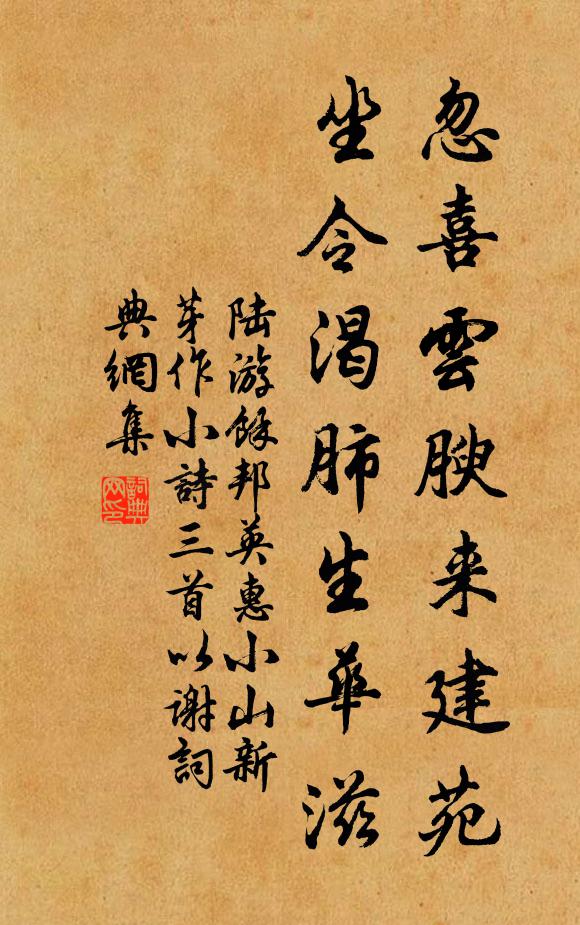 忽喜雲腴来建苑
坐令渴肺生華滋
陆游餘邦英惠小山新
芽作小詩三首以谢詞
典網集
詞典网印